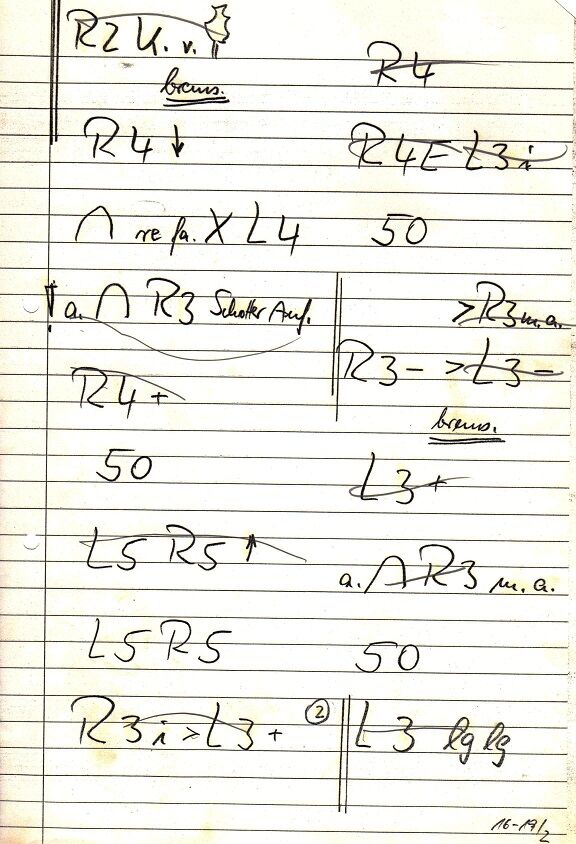 R2 K. v.
brems.
R4 ↓
∩ re fa. X L4
! a. ∩ R3 Schotter Auf.
R4+
50
L5 R5 ↑
L5 R5
R3 i > L3 +
R4
R4E L3 i
50
> R3 m.a.
R3- > L3-
brems.
L3+
a. ∩ R3 m.a.
50
② L3 lg lg
16-19/2